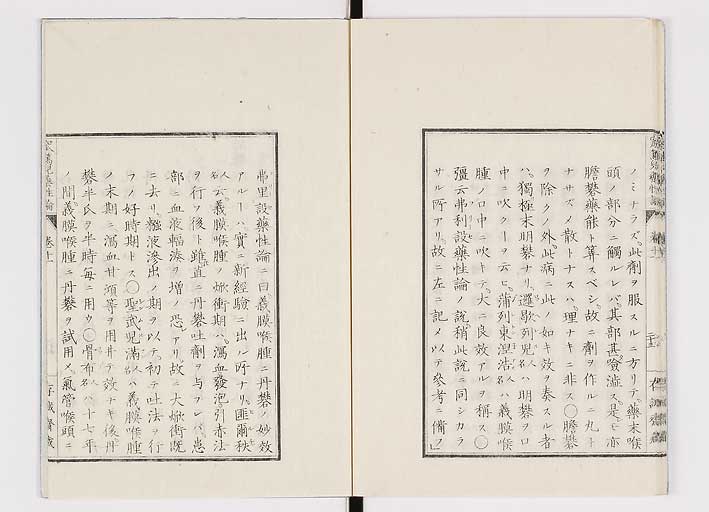 ノミナラズ。此劑ヲ服スルニ方リテ。藥末喉
頭ノ部分ニ觸ルレバ。其部甚險澁ス是モ亦
膽礬藥能ト算スベシ。故ニ劑ヲ作ルニ丸ト
ナサズノ散トナスハ。理ナキニ非ス〇膽礬
ヲ除クノ外。此病ニ此ノ如キ效ヲ奏スル者
ハ。獨極末明礬ナリ。邏歇列児人名ハ明礬ヲ口
中ニ吹クーヲ云ヒ。蒲列東涅沽人名ハ義膜喉
腫ノ口中ニ吹キテ。大ニ良效アルヲ稱ス〇
彊云弗利設藥性論ノ説稍此説ニ同シカラ
サル所アリ。故ニ左ニ記メ以テ參考ニ備フ」
弗里設藥性論ニ曰義膜喉腫ニ丹礬ノ妙效
アルーハ。實ニ新經驗ニ出ル所ナリ。匪爾秩
人名云。義膜喉腫ノ焮衝期ハ。瀉血發泡引赤法
ヲ行フ後ト雖。直ニ丹礬吐劑ヲ與フレバ。患
部ニ血液輻湊ヲ增ノ恐アリ故ニ大焮衝既
ニ去リ。粘液滲出ノ期ヲ以テ。初テ吐法ヲ行
フノ好時期トス〇聖武児満人名ハ義膜喉腫
ノ末期ニ。瀉血甘汞等ヲ用井テ效ナキ後。丹
礬半氏ヲ半時每ニ用ウ〇骨布人名ハ十七年
ノ間義膜喉腫ニ丹礬ヲ試用メ。氣管喉頭ニ